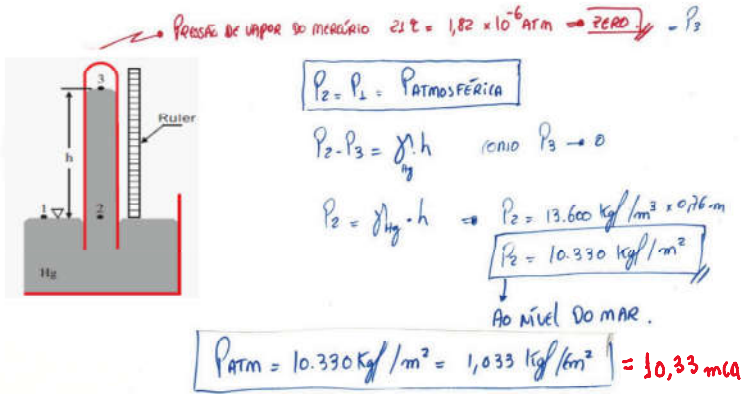 PRESSÃO DE VAPOR DO MERCÚRIO 21°C = 1,82 x 10⁻⁶ ATM → ZERO = P₃
3
P₂ = P₁ = PATMOSFÉRICA
Ruler
h
P₂ - P₃ = γHg . h COMO P₃ → 0
1 2
P₂ = γHg . h → P₂ = 13.600 Kgf/m³ x 0,76 m
P₂ = 10.330 Kgf/m²
Hg
AO NÍVEL DO MAR.
PATM = 10.330 Kgf/m² = 1,033 Kgf/cm² = 10,33 mca